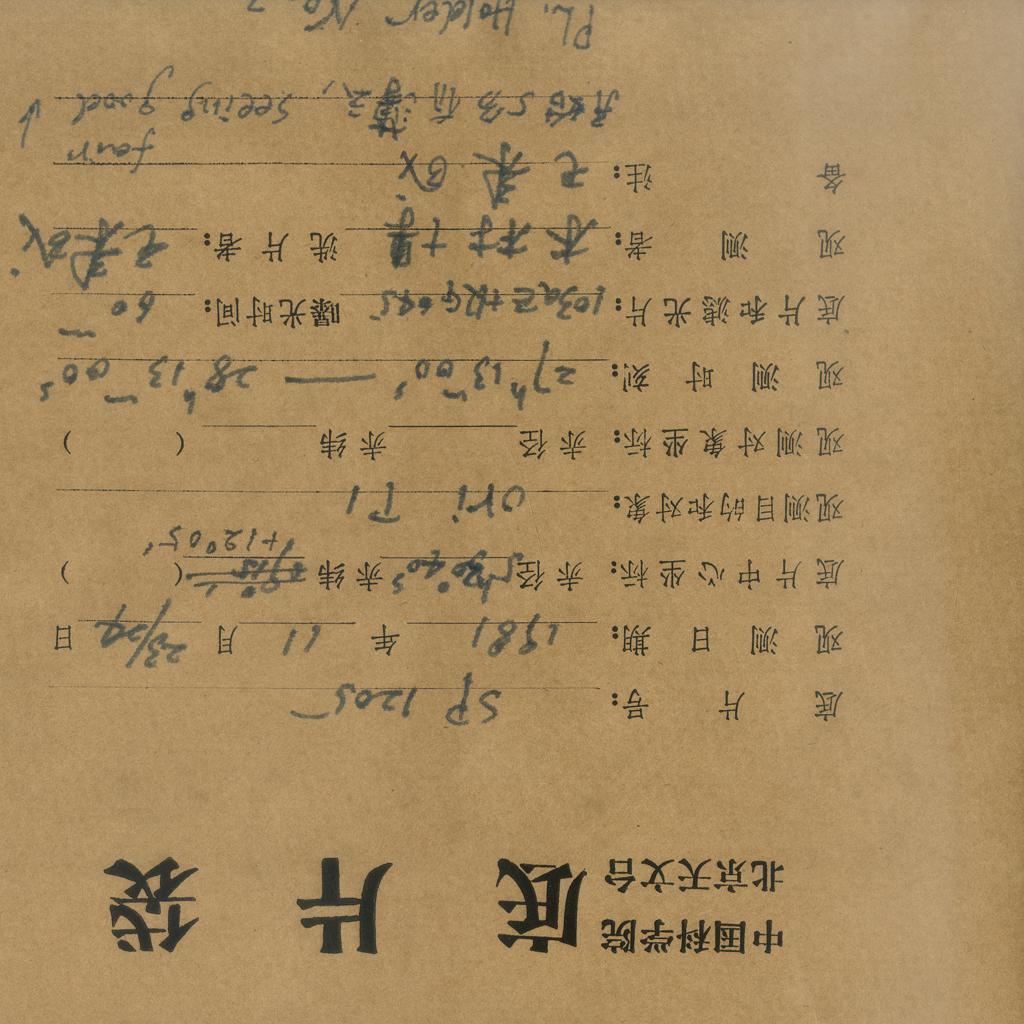 中国科学院
北京天文台
底片袋
底片号: SP 1205
观测日期: 1981 年 11 月 23/24 日
底片中心坐标: 赤径 赤纬 ( )
+12°05′
观测目的和对象: Ori T1
观测对象坐标: 赤径 赤纬 ( )
观测时刻: 27ʰ13ᵐ00ˢ — 28ʰ13ᵐ00ˢ
底片和滤光片: 103aE+RG645 曝光时间: 60ᵐ
观测者: 洗片者:
备注:
开始5分有薄云, seeing good
fair
PL. Holder No. 2